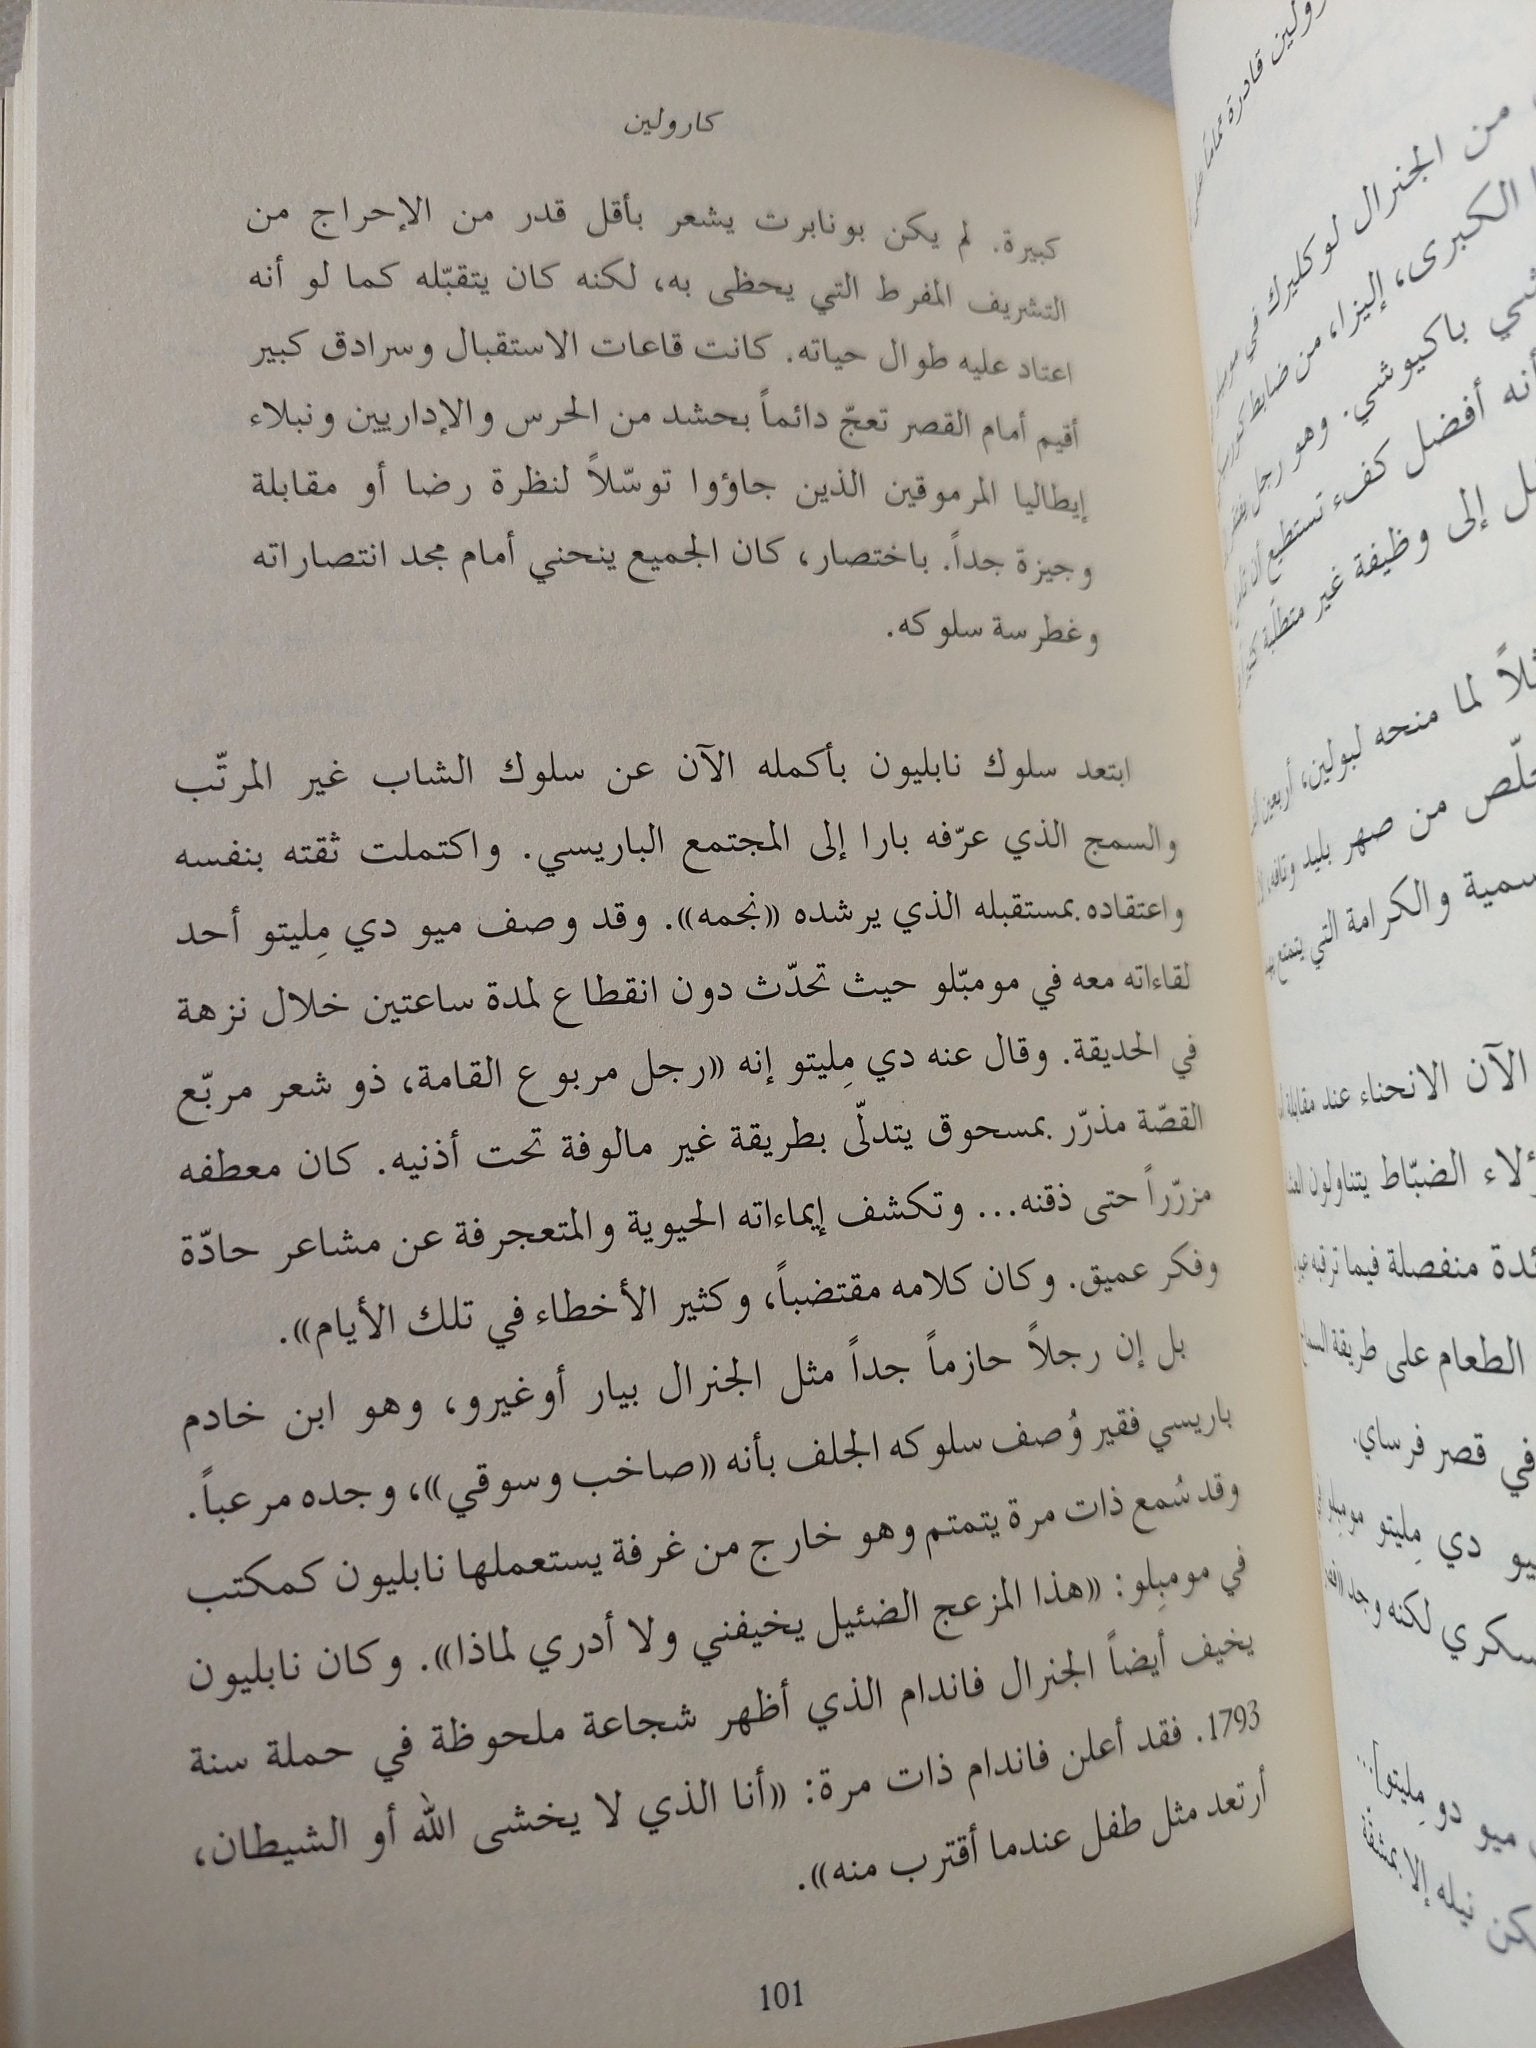 كارولين
كبيرة. لم يكن بونابرت يشعر بأقل قدر من الإحراج من
التشريف المفرط التي يحظى به، لكنه كان يتقبّله كما لو أنه
اعتاد عليه طوال حياته. كانت قاعات الاستقبال وسرادق كبير
أقيم أمام القصر تعجّ دائماً بحشد من الحرس والإداريين ونبلاء
إيطاليا المرموقين الذين جاؤوا توسّلاً لنظرة رضا أو مقابلة
وجيزة جداً. باختصار، كان الجميع ينحني أمام مجد انتصاراته
وغطرسة سلوكه.
ابتعد سلوك نابليون بأكمله الآن عن سلوك الشاب غير المرتّب
والسمج الذي عرّفه بارا إلى المجتمع الباريسي. واكتملت ثقته بنفسه
واعتقاده بمستقبله الذي يرشده «نجمه». وقد وصف ميو دي مِليتو أحد
لقاءاته معه في مومبّلو حيث تحدّث دون انقطاع لمدة ساعتين خلال نزهة
في الحديقة. وقال عنه دي مِليتو إنه «رجل مربوع القامة، ذو شعر مربّع
القصّة مذرّر بمسحوق يتدلّى بطريقة غير مالوفة تحت أذنيه. كان معطفه
مزرّراً حتى ذقنه... وتكشف إيماءاته الحيوية والمتعجرفة عن مشاعر حادّة
وفكر عميق. وكان كلامه مقتضباً، وكثير الأخطاء في تلك الأيام».
بل إن رجلاً حازماً جداً مثل الجنرال بيار أوغيرو، وهو ابن خادم
باريسي فقير وُصف سلوكه الجلف بأنه «صاخب وسوقي»، وجده مرعباً.
وقد سُمع ذات مرة يتمتم وهو خارج من غرفة يستعملها نابليون كمكتب
في مومبِلو: «هذا المزعج الضئيل يخيفني ولا أدري لماذا». وكان نابليون
يخيف أيضاً الجنرال فاندام الذي أظهر شجاعة ملحوظة في حملة سنة
1793. فقد أعلن فاندام ذات مرة: «أنا الذي لا يخشى الله أو الشيطان،
أرتعد مثل طفل عندما أقترب منه».
101
قادرة تماماً
من الجنرال لوكليرك في
الكبرى، إليزا، من ضابط
باكيوشي. وهو رجل
أنه أفضل كفء تستطيع أن
إلى وظيفة غير متطلّبة
لما منحه لبولين، أربعين
من صهر بليد وتافه،
والكرامة التي يتمتع
الآن الانحناء عند مقابلة
الضبّاط يتناولون
منفصلة فيما ترقبه
الطعام على طريقة
في قصر فرساي.
دي مِليتو
لكنه وجد
ميو دو مِليتو]...
نيله إلا بمشقة